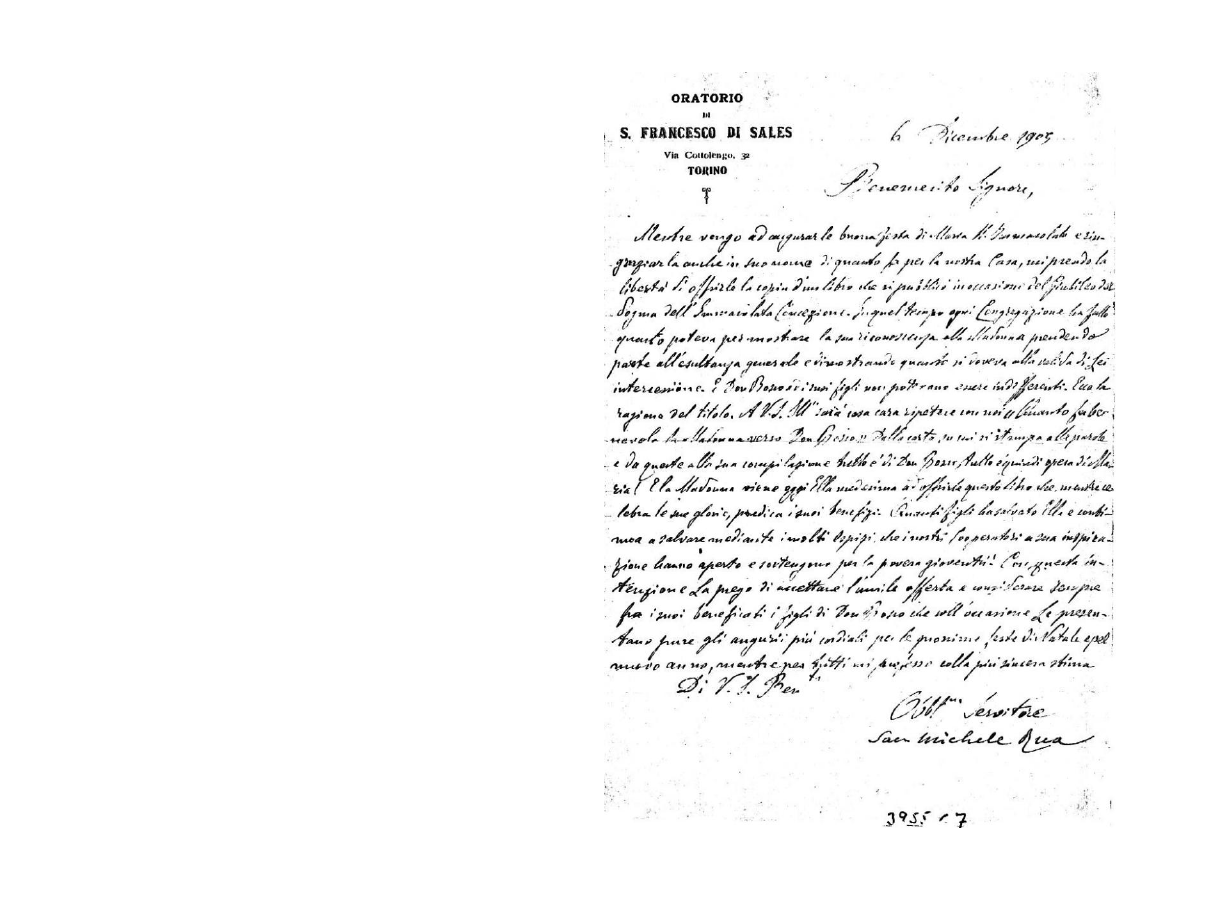 ORATORIO
DI
S. FRANCESCO DI SALES
Via Cottolengo, 32
TORINO
6 Dicembre 1905
Benemerito Signore,
Mentre vengo ad augurarle buona festa di Maria SS. Immacolata e rin-
graziarla anche in suo nome di quanto fa per la nostra Casa, mi prendo la
libertà di offrirle la copia d'un libro che si pubblicò in occasione del Giubileo del
Dogma dell'Immacolata Concezione. In quel tempo ogni Congregazione ha fatto
quanto poteva per mostrare la sua riconoscenza alla Madonna prendendo
parte all'esultanza generale e dimostrando quanto si doveva alla valida di Lei
intercessione. E Don Bosco ed i suoi figli non potevano essere indifferenti. Ecco la
ragione del titolo. A V. S. Ill.ma sarà cosa cara ripetere con noi "Quanto fu bene-
nevola la Madonna verso Don Bosco". Dalla carta, su cui si stampa alle parole
e da queste alla sua compilazione tutto è di Don Bosco, tutto è quindi opera di Ma-
ria! E la Madonna viene oggi Ella medesima ad offrirle questo libro che, mentre ce-
lebra le sue glorie, predica i suoi benefizi. Quanti figli ha salvato Ella e conti-
nua a salvare mediante i molti Ospizi che i nostri Cooperatori a sua inspira-
zione hanno aperto e sostengono per la povera gioventù! Con questa in-
tenzione La prego di accettare l'umile offerta e considerare sempre
fra i suoi beneficati i figli di Don Bosco che coll'occasione Le presen-
tano pure gli augurii più cordiali per le prossime feste di Natale e pel
nuovo anno, mentre per tutti mi professo colla più sincera stima
Di V. S. Ben.ta
Obbl.mo Servitore
Sac. Michele Rua
3955 C 7